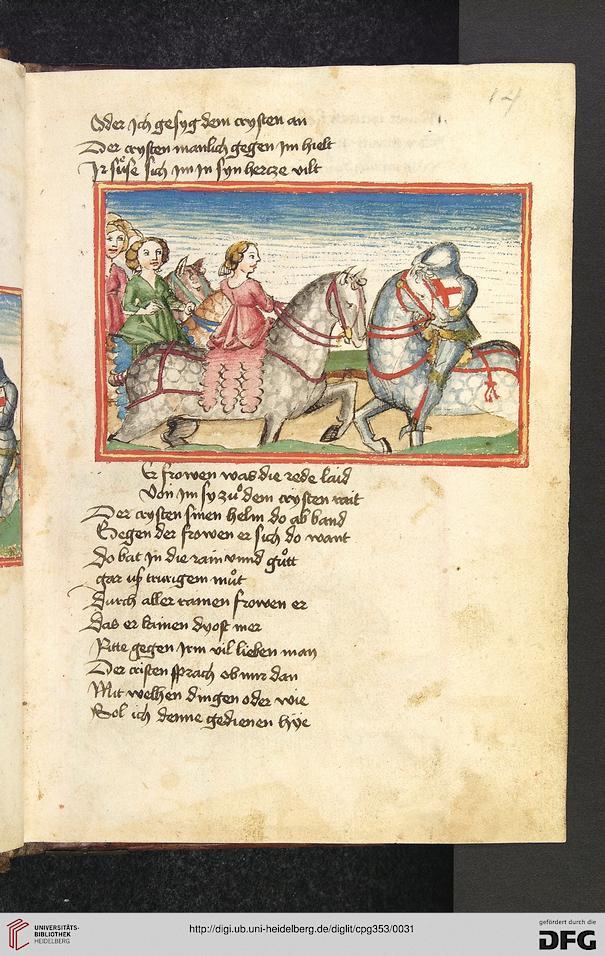 14
Oder ich gesyg dem crysten an
Der crysten manlich gegen im hielt
Ir süse sich im in syn hercze vilt
Er frowen was die rede laid
Von im sy zů dem crysten rait
Der crysten sinen helm do ab band
Gegen der frowen er sich do want
Do bat in die rain vnnd gůtt
gar uß trurigem můt
Durch aller ramen frowen er
Das er kainen dyost mer
Ritte gegen irm vil lieben man
Der cristen sprach ob mir dan
Mit welhen dingen oder wie
Sol ich denne gedienen hÿe
UNIVERSITÄTS-
BIBLIOTHEK
HEIDELBERG
http://digi.ub.uni-heidelberg.de/diglit/cpg353/0031
gefördert durch die
DFG